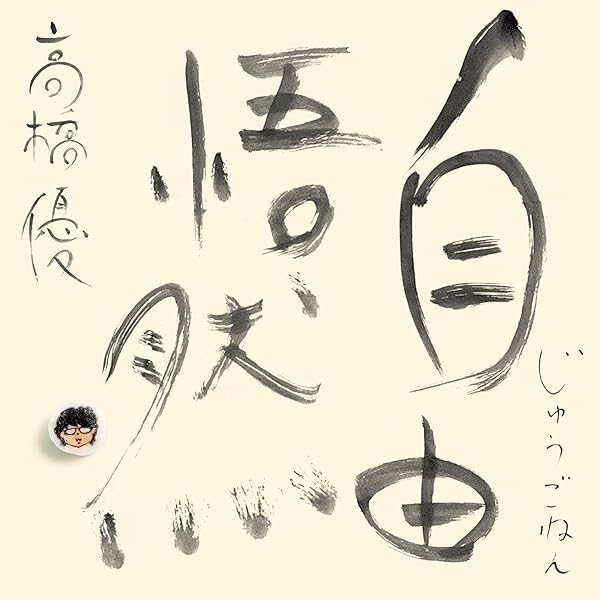 自由
じゅうごねん
悟然
高橋優